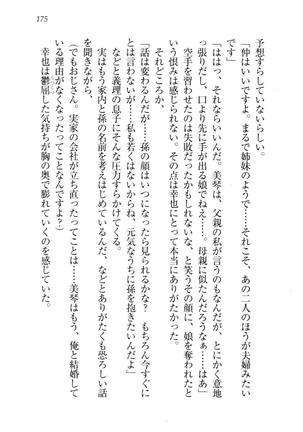 175
予想すらしていないらしい。
「仲はいいですよ。まるで姉妹のようで……それこそ、あの二人のほうが夫婦みたい
です」
「ははっ、それならいいんだ。美琴は、父親の私が言うのもなんだが、とにかく意地
っ張りだし、口より先に手が出る娘でねえ……。母親に似たんだろうなぁ……はあ」
空手を習わせたのは失敗だったかもしれないな、と笑うその顔に、娘を奪われたと
いう恨みは感じられない。その点は幸也にとって本当にありがたかった。
それどころか、
「話は変わるんだが……孫の顔はいつになったら見られるかな？　もちろん今すぐに
とは言わないが……私も若くはないからね、元気なうちに孫を抱きたいんだよ」
などと義理の息子にそんな圧力すらかけてくる。
実はもう家内と孫の名前を考えはじめているんだ、などとありがたくも恐ろしい話
を聞きながら、
（でもおじさん。実家の会社が立ち直ったってことは……美琴はもう、俺と結婚して
いる理由がなくなったってことなんですよ？）
幸也は鬱屈した気持ちが胸の奥で膨れていくのを感じていた。